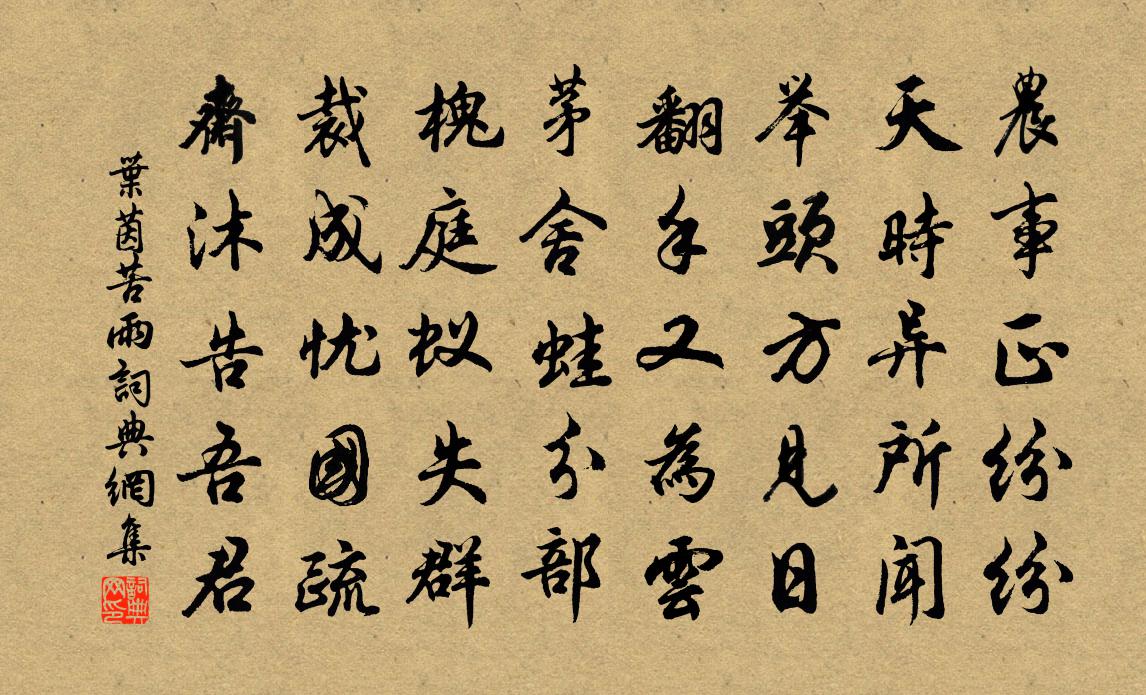 農事正纷纷
天時异所聞
举頭方見日
翻手又為雲
茅舍蛙分部
槐庭蚁失群
裁成忧國疏
齋沐告吾君
葉茵苦雨詞典網集
詞典
网印